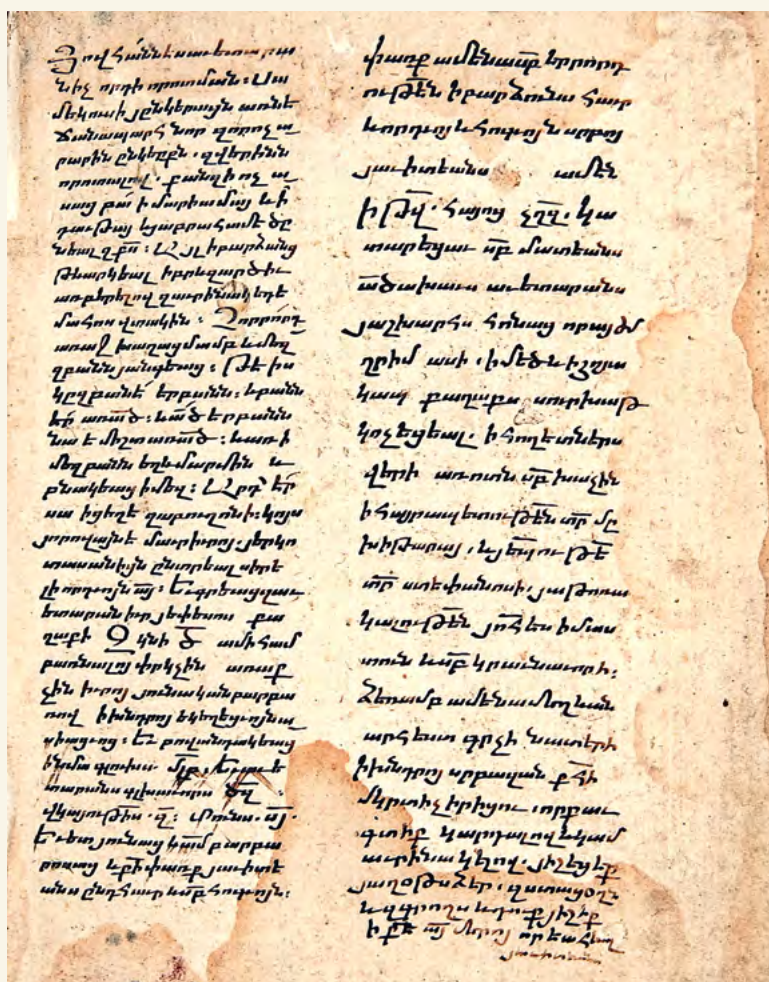 Յովհաննէս աւետարա
նիչ որդի որոտման։ Սա
մեկուսի յընկերացն առնէ
ճանապարհ նոր
րարին ընկերքն. զվերինն
որոտալով. քանզի ոչ ա
սաց բա՛ ի մարիամայ և ի
դաւթայ և յաբրահամէ ծը
նեալ զքս։ Այլ ի բարձանց
թևարկեալ իբր զարծիւ
առբերելով զաւրինակ եդե
մահոս վտակին։ Չորրորդ
առաջ խաղացմամբ և մեզ
զբանն յանգեաց։ Թէ ի ս
կըզբանէ էր բանն. և բանն
էր առ ած։ և ած էր բանն
նա է միշտ առ ած։ և առ ի
մեզ բանն եղև մարմին և
բնակեաց ի մեզ։ Արդ էր
սա ի ցեղէ զաբուղոնի։ կոյս
յորովայնէ մաւր իւրոյ. յերկո
տասանիցն ընտրեալ սիրե
լի որդւոյն այ։ Եւ գրեաց զաւ
ետարան իւր յեփեսոս քա
ղաքի Ջ կնի Ծ ամի համ
բառնալոյ փրկչին առաք
չին իւրոյ յունական բարբա
ռով ի խնդրոյ եկեղեցւոյն ա
սիացւոց։ Եւ բովանդակեաց
ի նմա գլուխս. մլբ. Եւ աւե
տարանս գլխաւորս ծզ։
վկայութիս. զ։ Տունս. ռյ.
Եւ ետ յունաց կամ բարբա
րոսաց և քի փառք յաւիտե
անս ընդ հաւր և սբ հոգոյն։
փառք ամենասբ երրորդ
ութեն ի բարձունս հաւր
և որդոյ և հոգոյն սրբոյ
յաւիտեանս ամէն
ի թվ. հայոց չղզ. կա
տարեցաւ սբ մատեանս
ածախաւս աւետարանս
յաշխարհս հոնաց որ այժմ
ղրիմ ասի. ի մեծ և ի հռչա
կապ քաղաքս սուրխաթ
կոչեցեալ. ի հողետներս
վերի առ ոտն սբ խաչին
ի հայրապետութեն տր մը
խիթարայ. և յեպսութե
տր ստեփանոսի. յաթոռա
կալութեն յոհնես իմաս
տուն և սբ կրաւնաւորի։
Ձեռամբ ամենամեղկան
արհեստ գրչի նատերի
խնդրոյ սրբազան քհի
մկրտիչ իրիցու. որք աւ
գտիք կարդալով և կամ
աւրինակելով. յիշեցէք
յաղօթս ձեր. զստացօղն
և զգրողս և դուք յիշիք
ի քէ այ մերոյ որ է աւհեալ